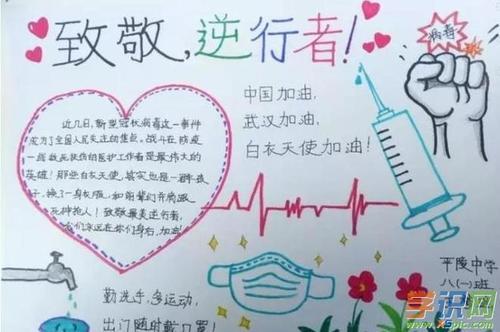 致敬,逆行者!
病毒
中国加油,
武汉加油,
白衣天使加油!
近几日,新型冠状病毒这一事件
成为了全国人民关注的焦点。战斗在防疫
一线救死扶伤的医护工作者是最伟大的
英雄!那些白衣天使,其实也是一群孩
子,换了一身衣服,和前辈们齐离跑
死神抢人!致敬最美逆行者,
我们永远在你们身后,加油!
平陵中学
八(一)班
勤洗手,多运动,
出门随时戴口罩
学识网
www.xspic.com